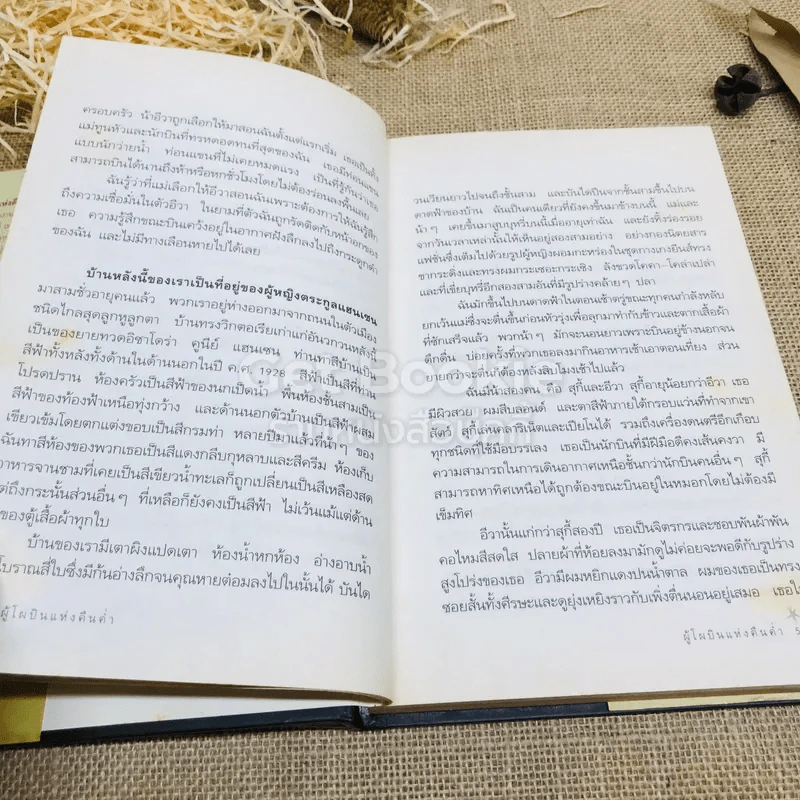 ครอบครัว น้าอีวาถูกเลือกให้มาสอนฉันตั้งแต่แรกเริ่ม เธอเป็นทั้ง
แม่ทูนหัวและนักบินที่ทรหดอดทนที่สุดของฉัน เธอมีท่อนแขน
แบบนักว่ายน้ำ ท่อนแขนที่ไม่เคยหมดแรง เป็นที่รู้กันว่าเธอ
สามารถบินได้นานถึงห้าหรือหกชั่วโมงโดยไม่ต้องร่อนลงพื้นเลย
ฉันรู้ว่าที่แม่เลือกให้อีวาสอนฉันเพราะต้องการให้ฉันรู้สึก
ถึงความเชื่อมั่นในตัวอีวา ในยามที่ตัวฉันถูกรัดติดกับหน้าอกของ
เธอ ความรู้สึกขณะบินคว้างอยู่ในอากาศฝังลึกลงไปถึงกระดูกดำ
ของฉัน และไม่มีทางเลือนหายไปได้เลย
บ้านหลังนี้ของเราเป็นที่อยู่ของผู้หญิงตระกูลแฮนเซน
มาสามชั่วอายุคนแล้ว พวกเราอยู่ห่างออกมาจากถนนในตัวเมือง
ชนิดไกลสุดลูกหูลูกตา บ้านทรงวิกตอเรียเก่าแก่อันวกวนหลังนี้
เป็นของยายทวดอิซาโดร่า คูนีย์ แฮนเซน ท่านทาสีบ้านเป็น
สีฟ้าทั้งหลังทั้งด้านในด้านนอกในปี ค.ศ. 1928 สีฟ้าเป็นสีที่ท่าน
โปรดปราน ห้องครัวเป็นสีฟ้าของนกเป็ดน้ำ พื้นห้องชั้นสามเป็น
สีฟ้าของท้องฟ้าเหนือทุ่งกว้าง และด้านนอกตัวบ้านเป็นสีฟ้าผสม
เขียวเข้มโดยตกแต่งขอบเป็นสีกรมท่า หลายปีมาแล้วที่น้าๆ ของ
ฉันทาสีห้องของพวกเธอเป็นสีแดงกลีบกุหลาบและสีครีม ห้องเก็บ
อาหารจานชามที่เคยเป็นสีเขียวน้ำทะเลก็ถูกเปลี่ยนเป็นสีเหลืองสด
แต่ถึงกระนั้นส่วนอื่นๆ ที่เหลือก็ยังคงเป็นสีฟ้า ไม่เว้นแม้แต่ด้าน
ของตู้เสื้อผ้าทุกใบ
บ้านของเรามีเตาผิงแปดเตา ห้องน้ำหกห้อง อ่างอาบน้ำ
โบราณสี่ใบซึ่งมีก้นอ่างลึกจนคุณหายต๋อมลงไปในนั้นได้ บันได
ผู้โผบินแห่งคืนค่ำ
วนเวียนยาวไปจนถึงชั้นสาม และบันไดปีนจากชั้นสามขึ้นไปบน
ดาดฟ้าของบ้าน ฉันเป็นคนเดียวที่ยังคงขึ้นมาข้างบนนี้ แม่และ
น้าๆ เคยขึ้นมาสูบบุหรี่บนนี้เมื่ออายุเท่าฉัน และยังทิ้งร่องรอย
จากวันเวลาเหล่านั้นให้เห็นอยู่สองสามอย่าง อย่างกองนิตยสาร
แฟชั่นซึ่งเต็มไปด้วยรูปผู้หญิงผอมกะหร่องในชุดกางเกงยีนส์ทรง
ขากระดิ่งและทรงผมกระเซอะกระเซิง ลังขวดโคคา-โคล่าเปล่า
และที่เขี่ยบุหรี่อีกสองสามอันที่มีรูปร่างคล้ายๆ ปลา
ฉันมักขึ้นไปบนดาดฟ้าในตอนเช้าตรู่ขณะทุกคนกำลังหลับ
ยกเว้นแม่ซึ่งจะตื่นขึ้นก่อนหัวรุ่งเพื่อลุกมาทำกับข้าวและตากเสื้อผ้า
ที่ซักเสร็จแล้ว พวกน้าๆ มักจะนอนยาวเพราะบินอยู่ข้างนอกจน
ดึกดื่น บ่อยครั้งที่พวกเธอลงมากินอาหารเช้าเอาตอนเที่ยง ส่วน
ยายกว่าจะตื่นก็ต้องหลังสิบโมงเช้าไปแล้ว
ฉันมีน้าสองคน คือ สุกี้และอีวา สุกี้อายุน้อยกว่าอีวา เธอ
มีผิวสวย ผมสีบลอนด์ และตาสีฟ้าภายใต้กรอบแว่นที่ทำจากเขา
สัตว์ สุกี้เล่นคลาริเน็ตและเปียโนได้ รวมถึงเครื่องดนตรีอีกเกือบ
ทุกชนิดที่ใช้มือบรรเลง เธอเป็นนักบินที่มีฝีมือดีคงเส้นคงวา มี
ความสามารถในการเดินอากาศเหนือชั้นกว่านักบินคนอื่นๆ สุกี้
สามารถหาทิศเหนือได้ถูกต้องขณะบินอยู่ในหมอกโดยไม่ต้องมี
เข็มทิศ
อีวานั้นแก่กว่าสุกี้สองปี เธอเป็นจิตรกรและชอบพันผ้าพัน
คอไหมสีสดใส ปลายผ้าที่ห้อยลงมามักดูไม่ค่อยจะพอดีกับรูปร่าง
สูงโปร่งของเธอ อีวามีผมหยิกแดงปนน้ำตาล ผมของเธอเป็นทรง
ซอยสั้นทั้งศีรษะและดูยุ่งเหยิงราวกับเพิ่งตื่นนอนอยู่เสมอ เธอใ
ผู้โผบินแห่งคืนค่ำ 5
Get Bookie
ร้านหนังสือเก่า